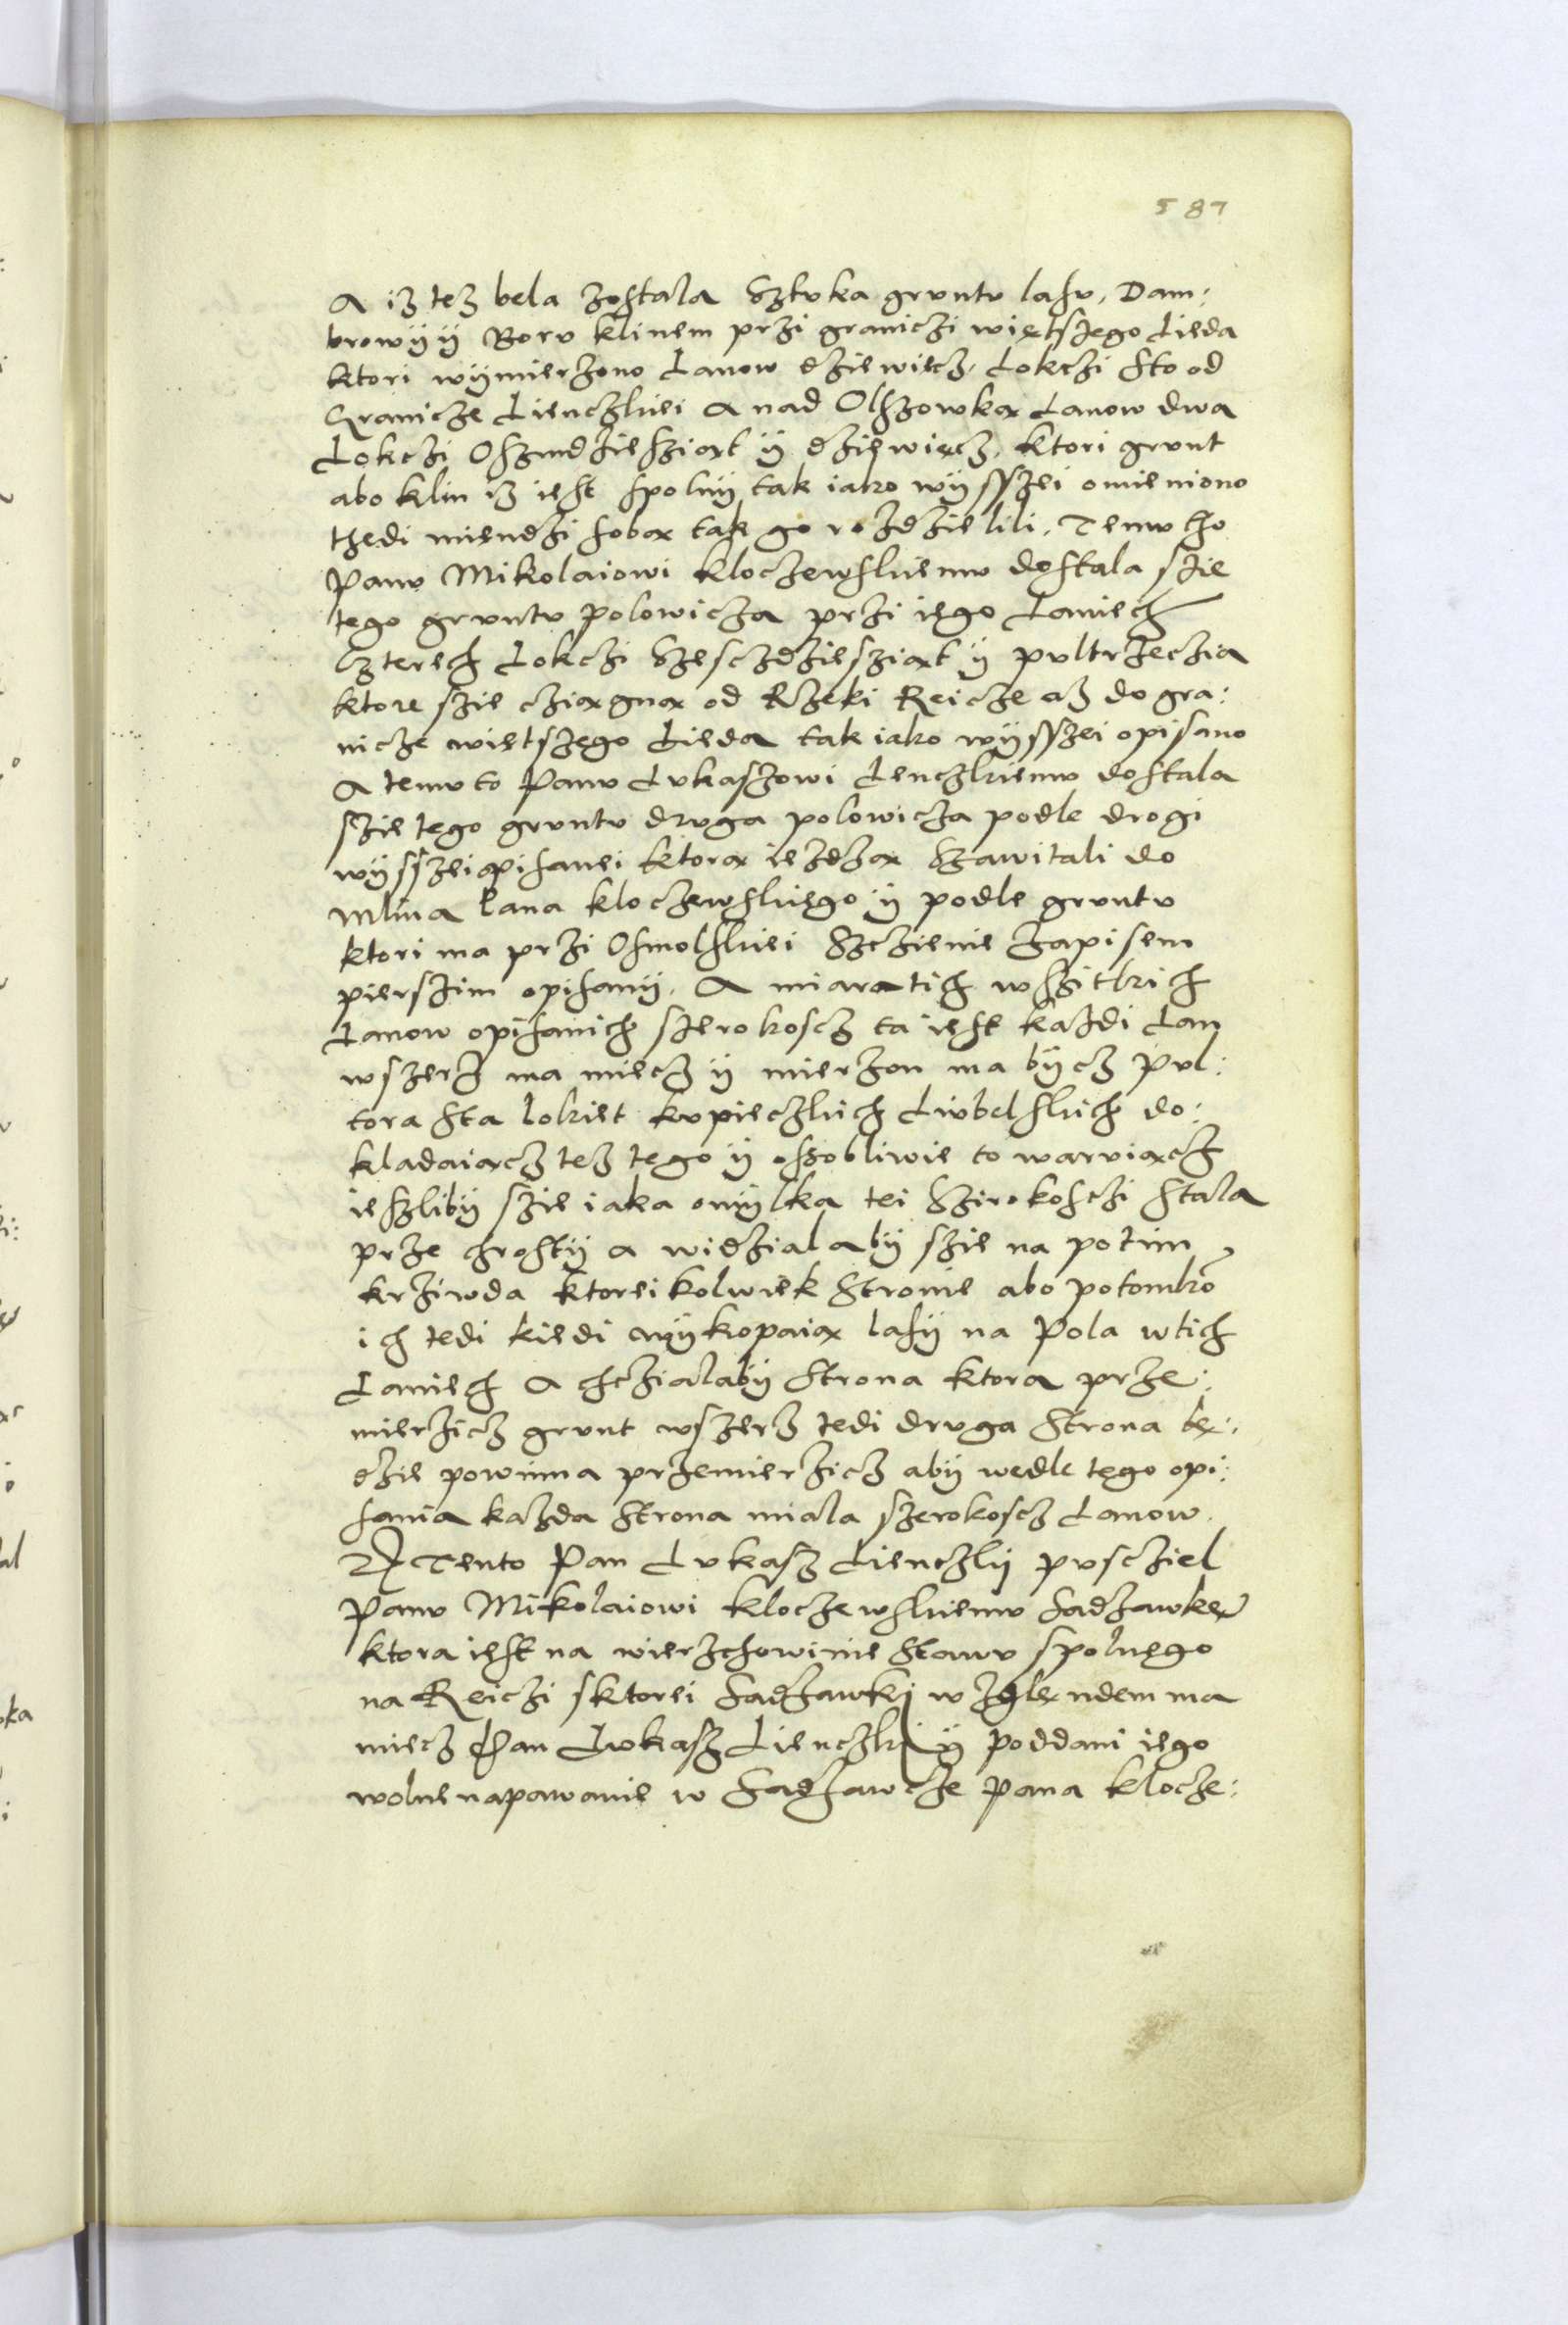 587
A iz tez bela zostala Sztvka grvntv lasv, Dam:
browÿ ÿ Borv klinem przi graniczi więtszego Lieda
ktori wÿmierzono Lanow dziewiecz, Lokczi sto od
Granicze Lienczkiei A nad Olszowką Lanow dwa
Lokczi Oszmdziesziąt ÿ dziewięcz, ktori grvnt
abo klin iz iest spolnÿ tak iako wÿsszei omieniono
thedi miendzi sobą tak go rozdzielili, Temv tho
Panv Mikolaiowi kloczewskiemv dostala szie
tego grvntv polowicza przi iego Laniech
Czterech Lokczi Szesczdziesziąt ÿ pvltrzeczia
ktore szie cziągną od Rzeki Reicze az do gra:
nicze wietszego Lieda tak iako wÿsszei opisano
A temv to Panv Lvkaszowi Lenczkiemv dostala
szie tego grvntv drvga polowicza podle drogi
wÿsszei opisanei ktorą iezdzą Szawitali do
Mlina Pana kloczewskiego ÿ podle grvntv
ktori ma przi Osmolskiei Szczienie Zapisem
pierszim opisanÿ. A miara tich wszitkich
Lanow opisanich szerokoscz ta iest kazdi Lan
wszerz ma miecz ÿ mierzon ma bÿcz Pvl:
tora sta lokiet kvpieczkich Livbelskich do:
kladaiącz tez tego ÿ oszobliwie to warviącz
ieszlibÿ szie iaka omÿlka tei Szirokosczi stala
prze chrostÿ a widzialabÿ szie na potim
krziwda ktoreikolwiek Stronie abo potomkō
ich tedi kiedi wÿkopaią lasÿ na Pola w tich
Laniech A chczialabÿ Strona ktora prze:
mierzicz grvnt wszerz tedi drvga Strona bę:
dzie powinna przemierzicz abÿ wedle tego opi:
sania kazda Strona miala szerokoscz Lanow.
A Tento Pan Lvkasz Lienczkij pvscziel
Panv Mikolaiowi kloczewskiemv sadzawkę
ktora iest na wierzchowinie stawv spolnego
na Reiczi s ktorei Sadzawki wzglendem ma
miecz Pan Lvkasz Lienczki ÿ poddani iego
wolne napawanie w Sadzawcze Pana klocze: